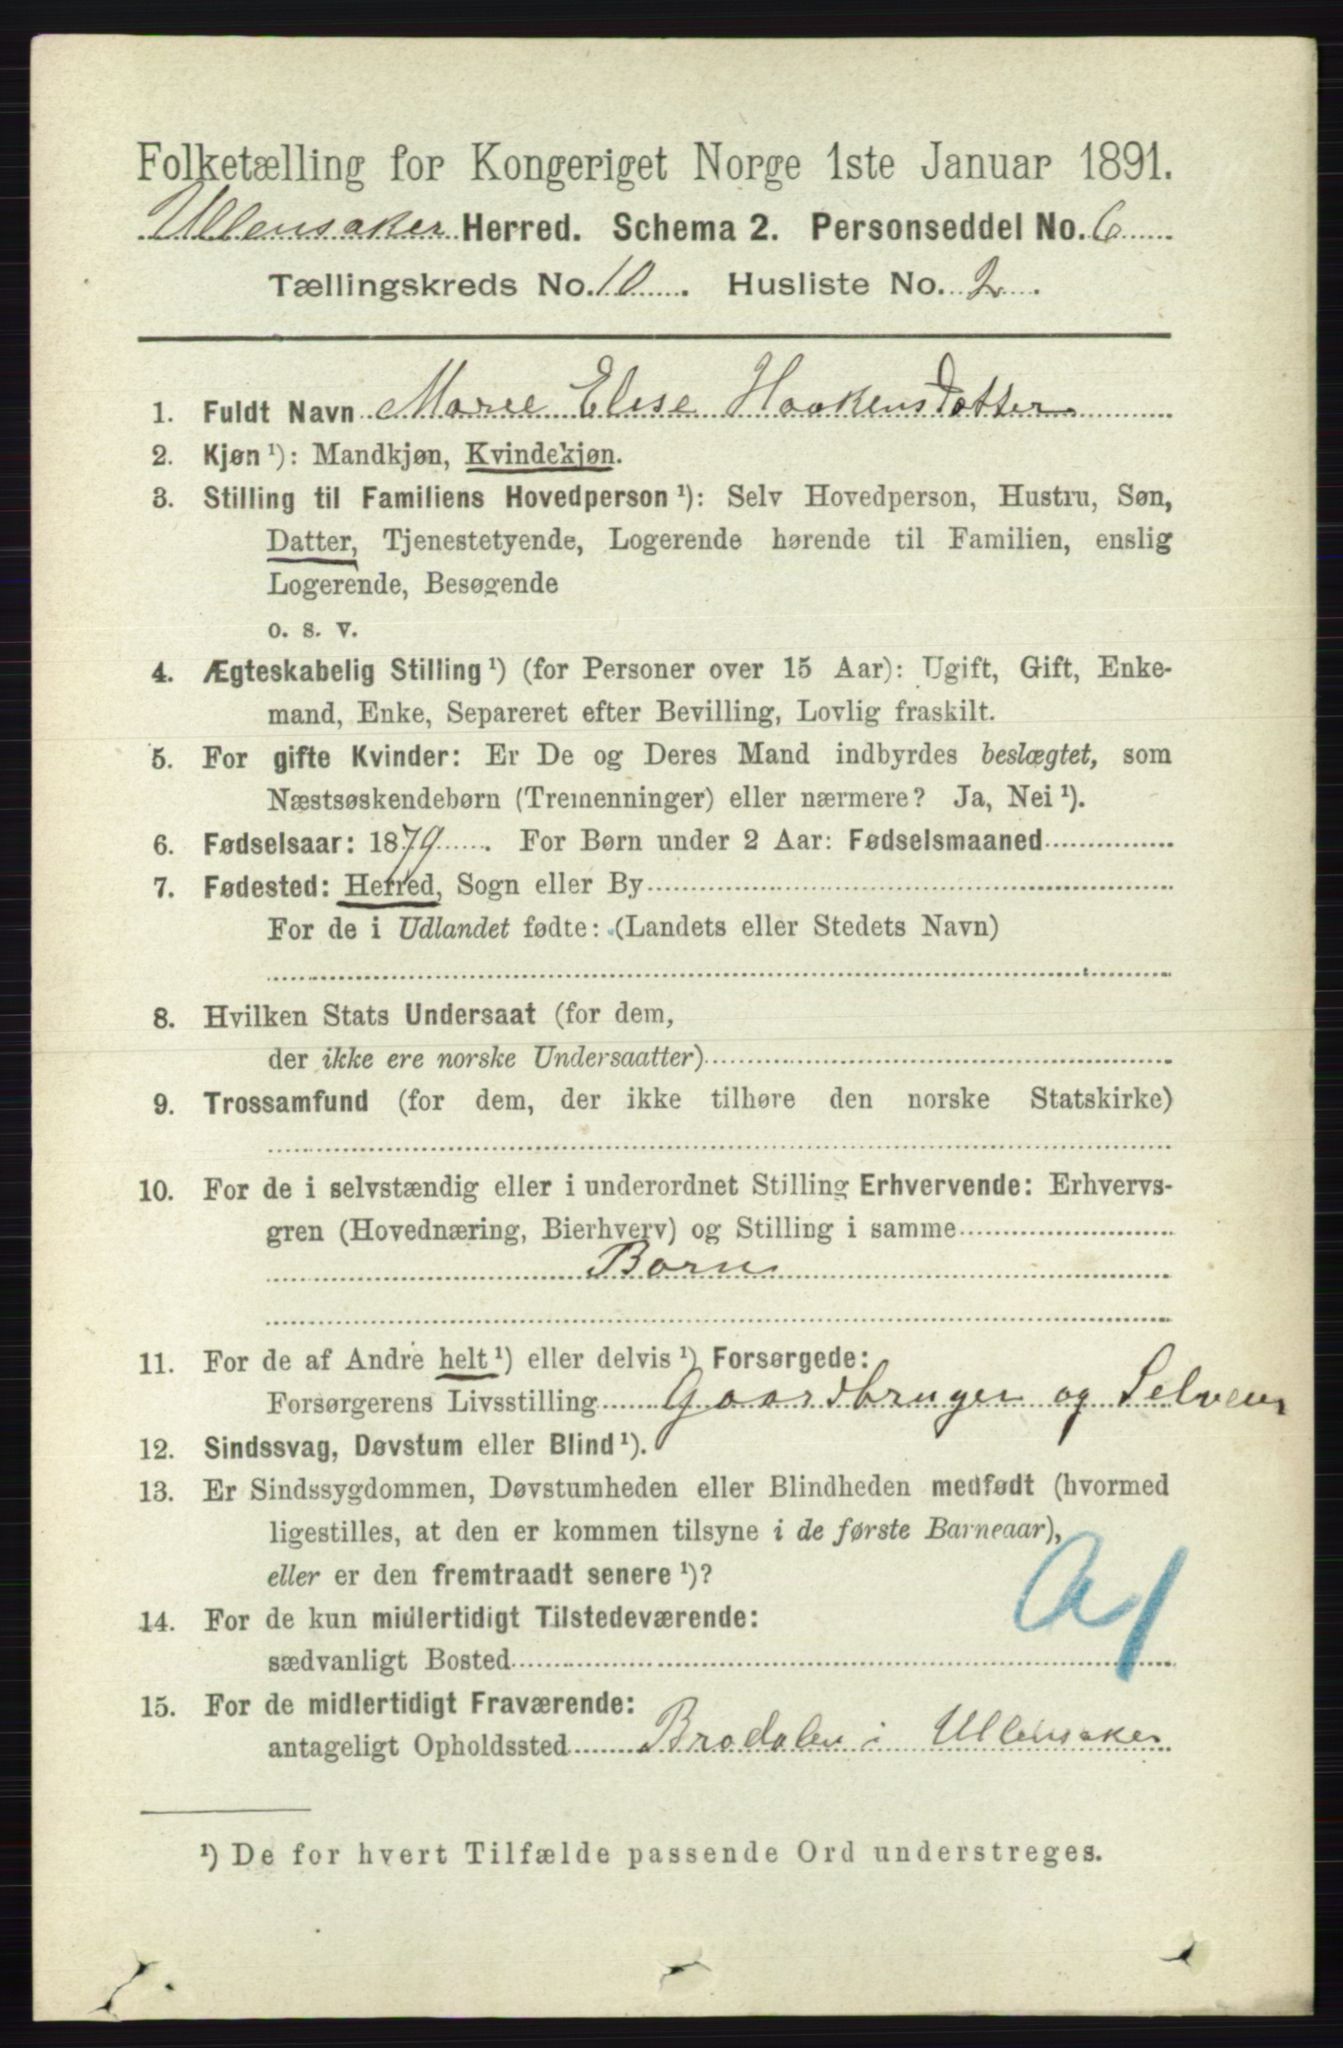 Folketælling for Kongeriget Norge 1ste Januar 1891.
Ullensaker Herred. Schema 2. Personseddel No. 6
Tællingskreds No. 10. Husliste No. 2.
1. Fuldt Navn Marie Elise Haakensdatter
2. Kjøn ¹): Mandkjøn, Kvindekjøn.
3. Stilling til Familiens Hovedperson ¹): Selv Hovedperson, Hustru, Søn,
Datter, Tjenestetyende, Logerende hørende til Familien, enslig
Logerende, Besøgende
o. s. v.
4. Ægteskabelig Stilling ¹) (for Personer over 15 Aar): Ugift, Gift, Enke-
mand, Enke, Separeret efter Bevilling, Lovlig fraskilt.
5. For gifte Kvinder: Er De og Deres Mand indbyrdes beslægtet, som
Næstsøskendebørn (Tremenninger) eller nærmere? Ja, Nei ¹).
6. Fødselsaar: 1879. For Børn under 2 Aar: Fødselsmaaned
7. Fødested: Herred, Sogn eller By
For de i Udlandet fødte: (Landets eller Stedets Navn)
8. Hvilken Stats Undersaat (for dem,
der ikke ere norske Undersaatter)
9. Trossamfund (for dem, der ikke tilhøre den norske Statskirke)
10. For de i selvstændig eller i underordnet Stilling Erhvervende: Erhvervs-
gren (Hovednæring, Bierhverv) og Stilling i samme
Barn
11. For de af Andre helt ¹) eller delvis ¹) Forsørgede:
Forsørgerens Livsstilling Gaardbruger og Selveier
12. Sindssvag, Døvstum eller Blind ¹).
13. Er Sindssygdommen, Døvstumheden eller Blindheden medfødt (hvormed
ligestilles, at den er kommen tilsyne i de første Barneaar),
eller er den fremtraadt senere ¹)?
14. For de kun midlertidigt Tilstedeværende:
sædvanligt Bosted
15. For de midlertidigt Fraværende:
antageligt Opholdssted Brodalen i Ullensaker
¹) De for hvert Tilfælde passende Ord understreges.